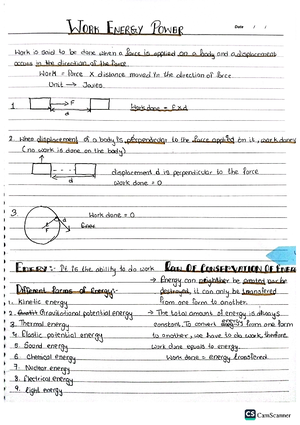 WORK ENERGY POWER
Date / /
Work is said to be done when a force is applied on a body and a displacement
occurs in the direction of the force.
Work = force X distance moved in the direction of force
Unit → Joules
1.
F
d
Work done = F x d
2. When displacement of a body is perpendicular to the force applied on it, work done
(no work is done on the body)
d
displacement d is perpendicular to the force
work done = 0
3.
d
F
Work done = 0
ENERGY:- It is the ability to do work
LAW OF CONSERVATION OF ENER
Different forms of Energy:-
→ Energy can neither be created nor be
destroyed, it can only be transferred
from one form to another.
1. Kinetic energy
2. Gravitational potential energy
3. Thermal energy
4. Elastic potential energy
5. Sound energy
6. Chemical energy
7. Nuclear energy
8. Electrical energy
9. Light energy
→ The total amount of energy is always
constant. To convert energy from one form
to another, we have to do work, therefore
work done equals to energy.
Work done = energy transferred
CS CamScanner